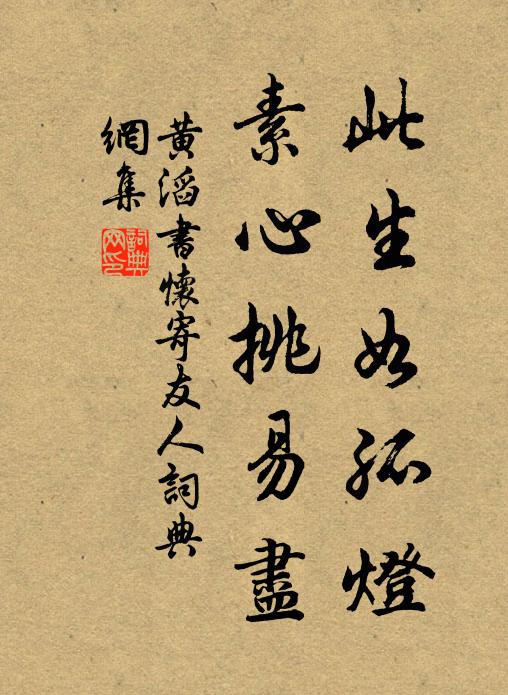 此生如孤燈
素心挑易盡
黃滔書懷寄友人詞典
網集
詞典
網印